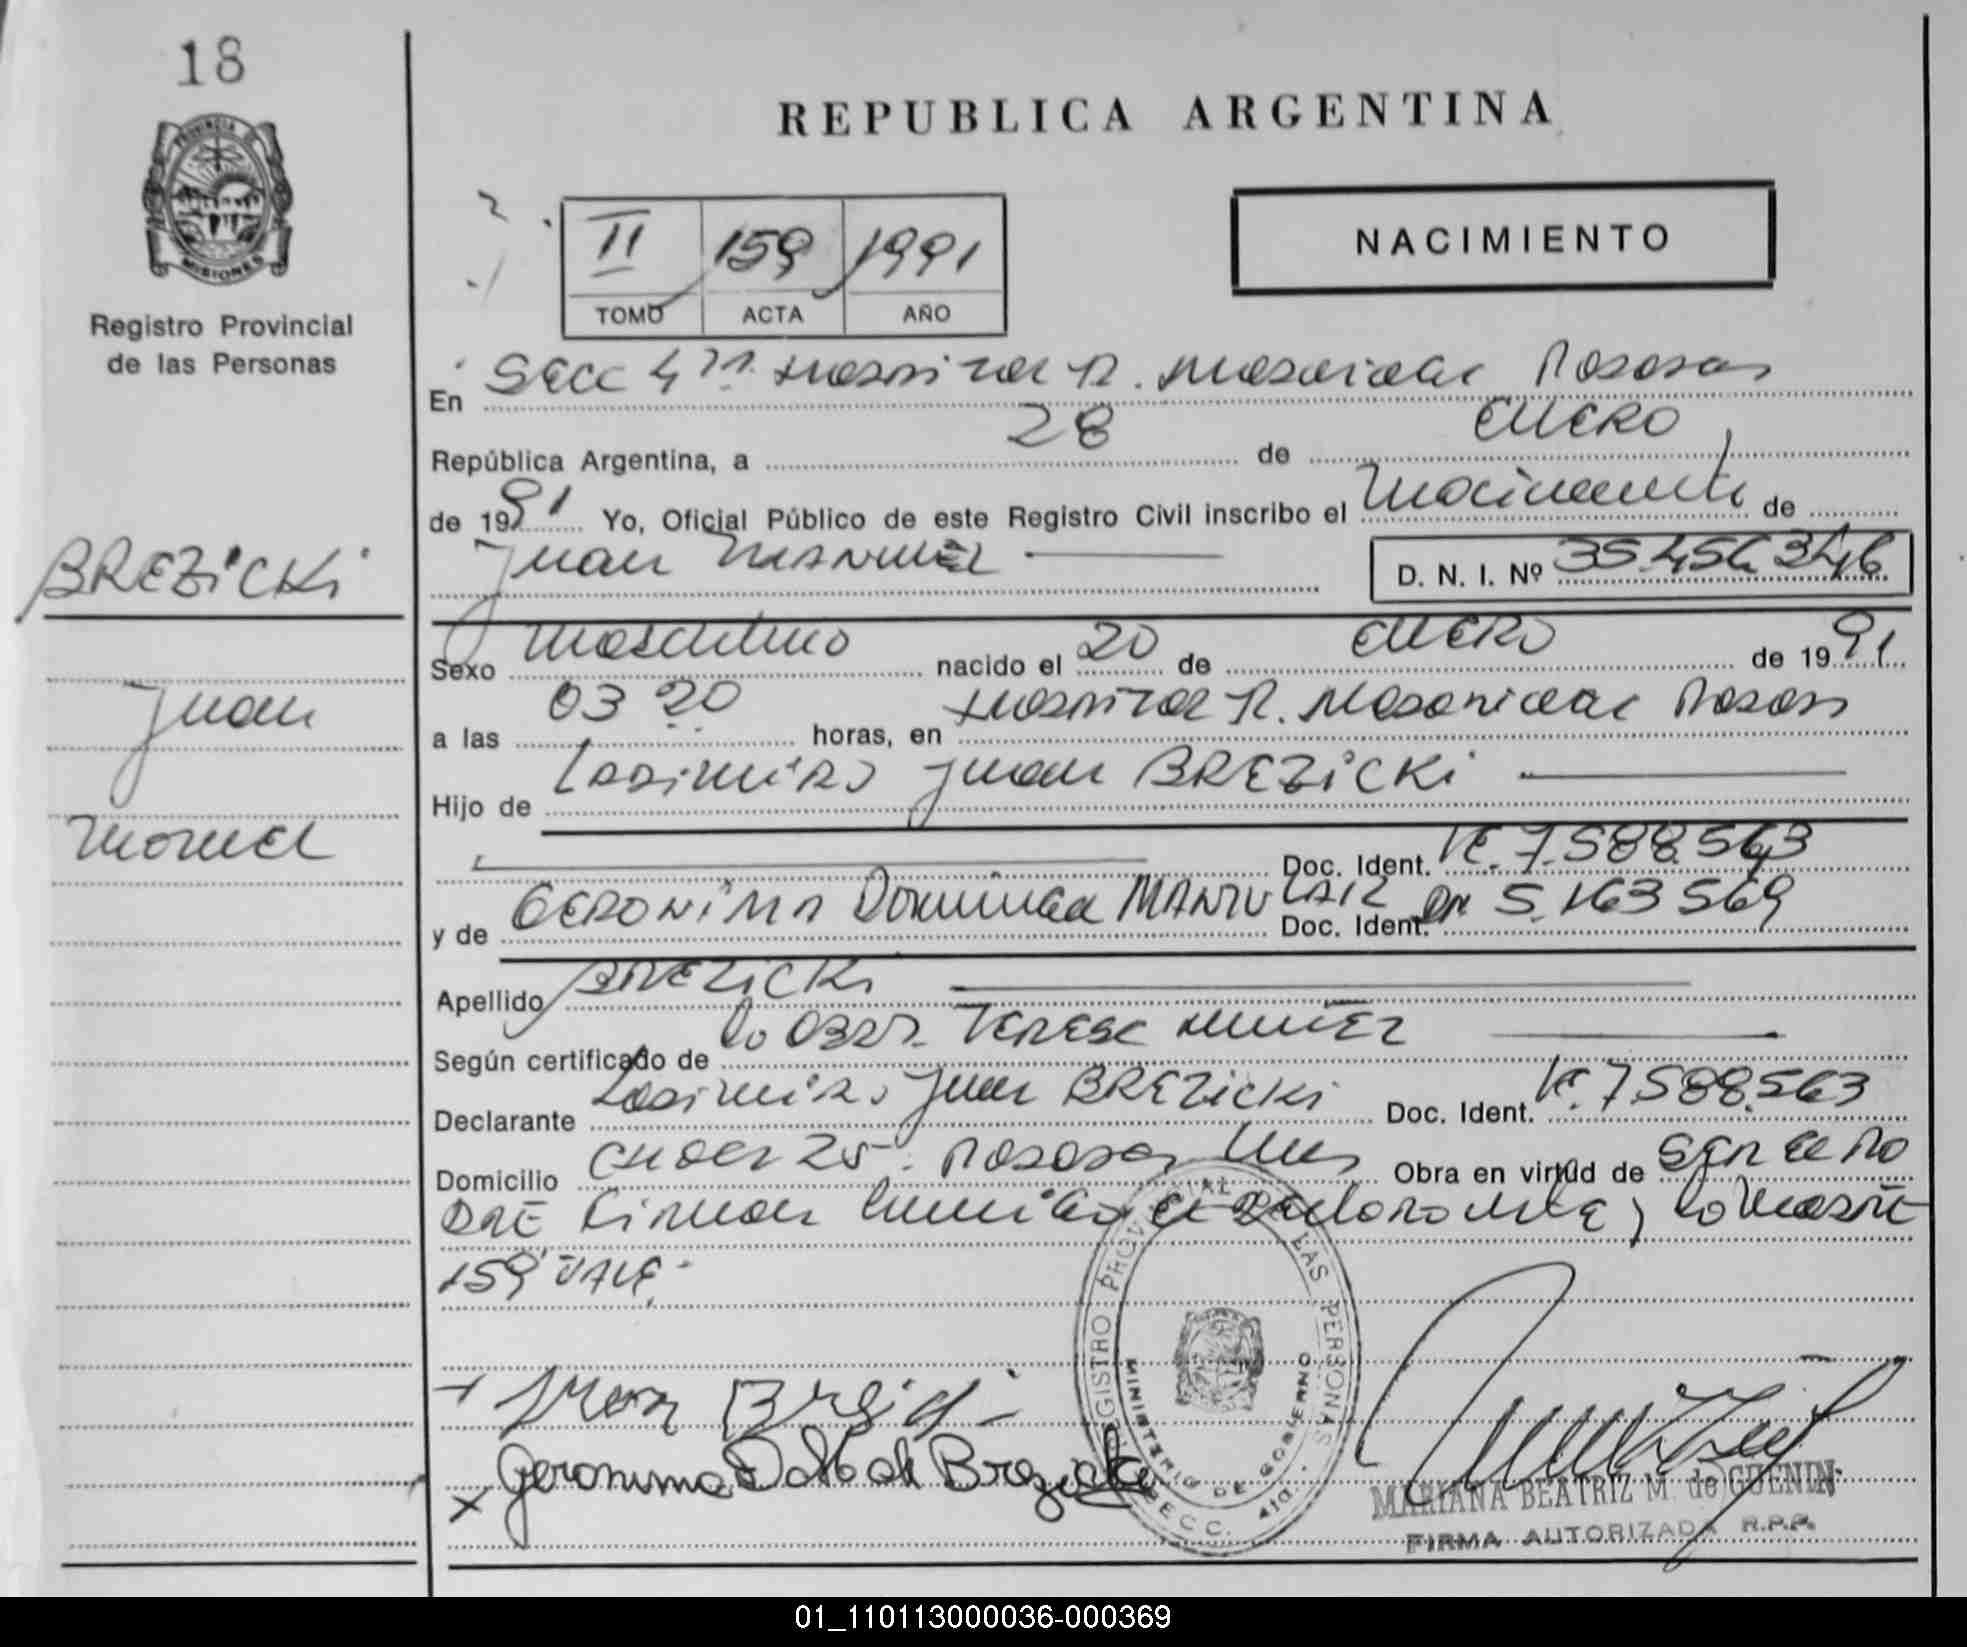 18
PROVINCIA DE
MISIONES
Registro Provincial
de las Personas
BREZiCKi
Juan
Manuel
REPUBLICA ARGENTINA
II 159 1991
TOMO ACTA AÑO
NACIMIENTO
En Secc 4ta. Hospital R. Madariaga Posadas
República Argentina, a 28 de ENERO
de 1991 Yo, Oficial Público de este Registro Civil inscribo el Nacimiento de
Juan MANUEL D. N. I. Nº 35.456.346
Sexo Masculino nacido el 20 de ENERO de 1991
a las 03 20 horas, en Hospital R. Madariaga Posadas
Hijo de Casimiro Juan BREZiCKi
Doc. Ident. 7.588.563
y de GERONiMA Dominga Doc. Ident. 5.163.569
Apellido BREZiCKi
Según certificado de la Obst. TERESA
Declarante Casimiro Juan BREZiCKi Doc. Ident. 7.588.563
Domicilio 25. Posadas Mnes Obra en virtud de ser el PA
DRE Firman el declarante y la MADRE
159 VALE.
Juan
Geronima D de Brezicki
REGISTRO PROVINCIAL DE LAS PERSONAS
MINISTERIO DE GOBIERNO
SECC. 4ta.
MARIANA BEATRIZ M. de GUENIN
FIRMA AUTORIZADA R.P.P.
01_110113000036-000369